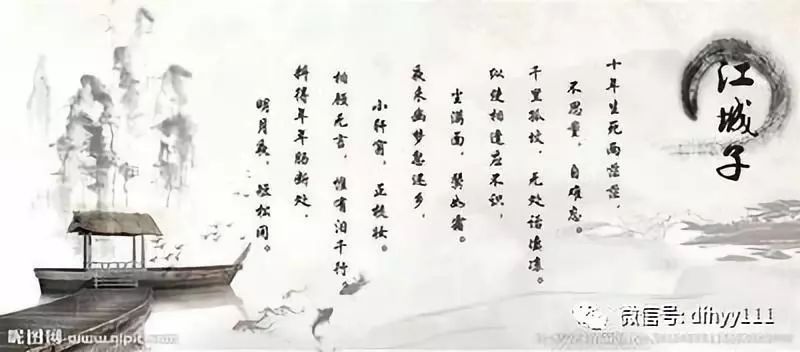 江城子
十年生死两茫茫，
不思量，自难忘。
千里孤坟，无处话凄凉。
纵使相逢应不识，
尘满面，鬓如霜。
夜来幽梦忽还乡，
小轩窗，正梳妆。
相顾无言，惟有泪千行。
料得年年肠断处，
明月夜，短松冈。
微信号: dihyy111
昵图网